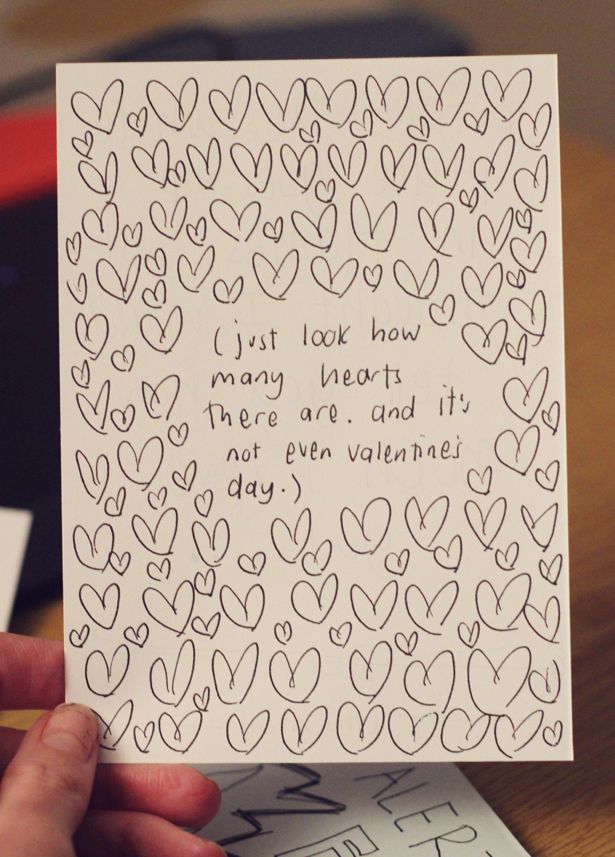 (just look how
many hearts
there are. and it's
not even valentine's
day.)
ALER
ME